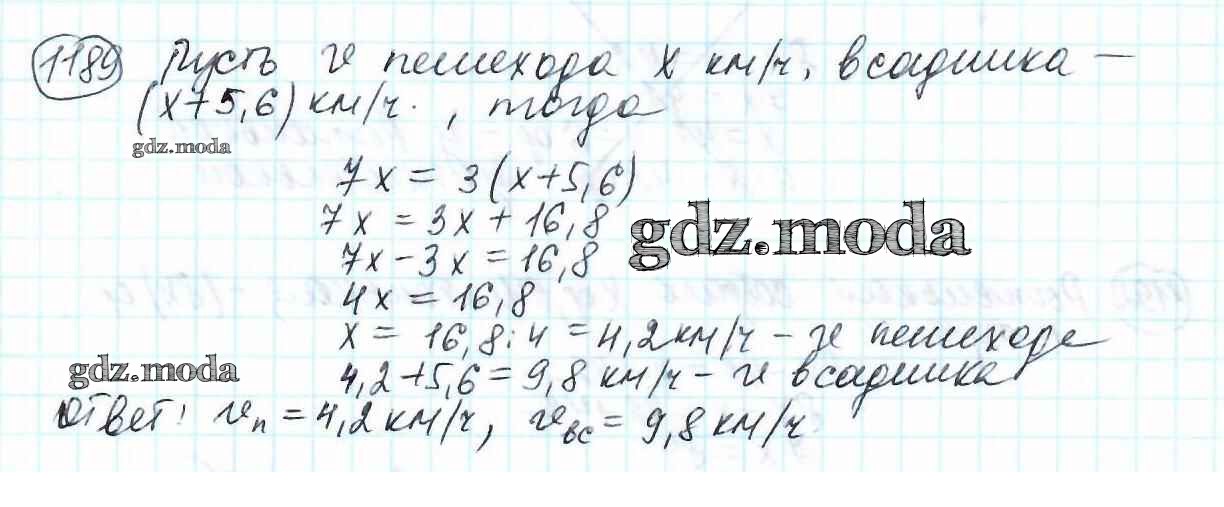 1189 Пусть v пешехода x км/ч, всадника —
(x+5,6) км/ч. , тогда
gdz.moda
7x = 3(x+5,6)
7x = 3x + 16,8
gdz.moda
7x - 3x = 16,8
4x = 16,8
x = 16,8 : 4 = 4,2 км/ч - v пешехода
gdz.moda
4,2+5,6 = 9,8 км/ч - v всадника
Ответ: vп = 4,2 км/ч, vвс = 9,8 км/ч